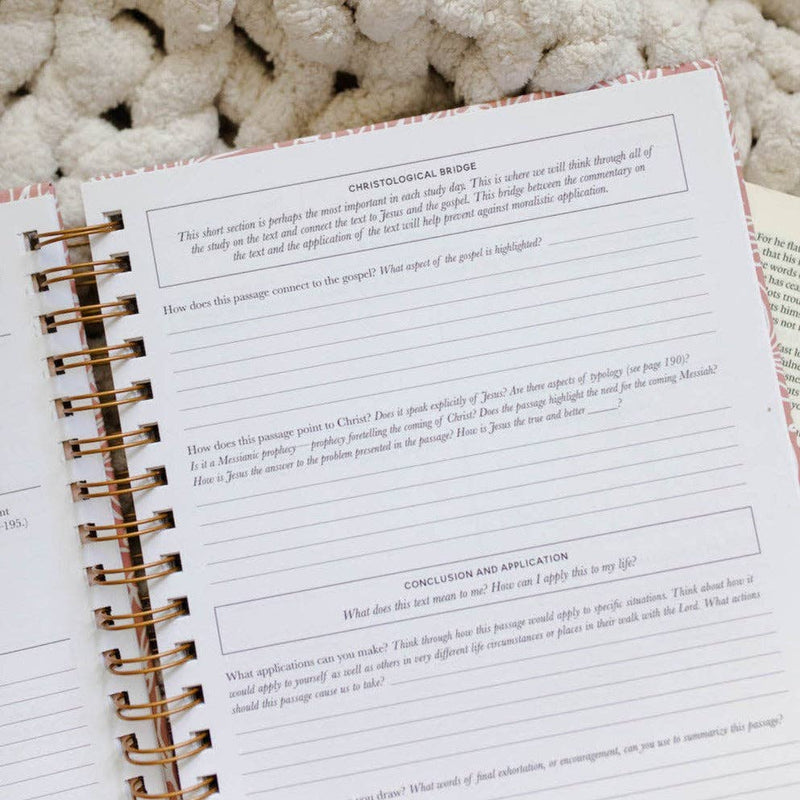 nt
-195.)
CHRISTOLOGICAL BRIDGE
This short section is perhaps the most important in each study day. This is where we will think through all of
the study on the text and connect the text to Jesus and the gospel. This bridge between the commentary on
the text and the application of the text will help prevent against moralistic application.
How does this passage connect to the gospel? What aspect of the gospel is highlighted?
How does this passage point to Christ? Does it speak explicitly of Jesus? Are there aspects of typology (see page 190)?
Is it a Messianic prophecy—prophecy foretelling the coming of Christ? Does the passage highlight the need for the coming Messiah?
How is Jesus the answer to the problem presented in the passage? How is Jesus the true and better ______?
CONCLUSION AND APPLICATION
What does this text mean to me? How can I apply this to my life?
What applications can you make? Think through how this passage would apply to specific situations. Think about how it
would apply to yourself as well as others in very different life circumstances or places in their walk with the Lord. What actions
should this passage cause us to take?
you draw? What words of final exhortation, or encouragement, can you use to summarize this passage?
For he fla
that his
words
has cea
ots trou
ts him
s not